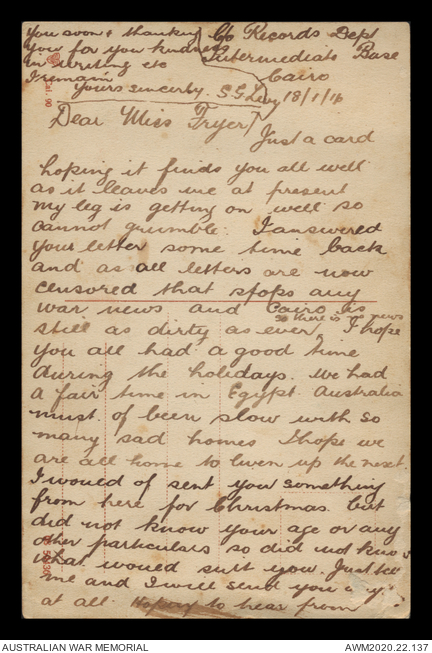 C/o Records Dept
Intermediate Base
Cairo
18/1/16
Dear Miss Fryer/
Just a card
hoping it finds you all well
as it leaves me at present
my leg is getting on well so
cannot grumble. I answered
your letter some time back
and as all letters are now
censored that stops any
war news and Cairo is
still as dirty as ever, so there is no news I hope
you all had a good time
during the holidays. We had
a fair time in Egypt. Australia
must of been slow with so
many sad homes I hope we
are all home to liven up the next.
I would of sent you something
from here for Christmas but
did not know your age or any
other particulars so did not know
what would suit you. Just
me and I will send you
at all. Hoping to hear from
you soon & thanking
you for you kindness
in writing etc
I remain
Yours sincerly. S G
AUSTRALIAN WAR MEMORIAL
AWM2020.22.137